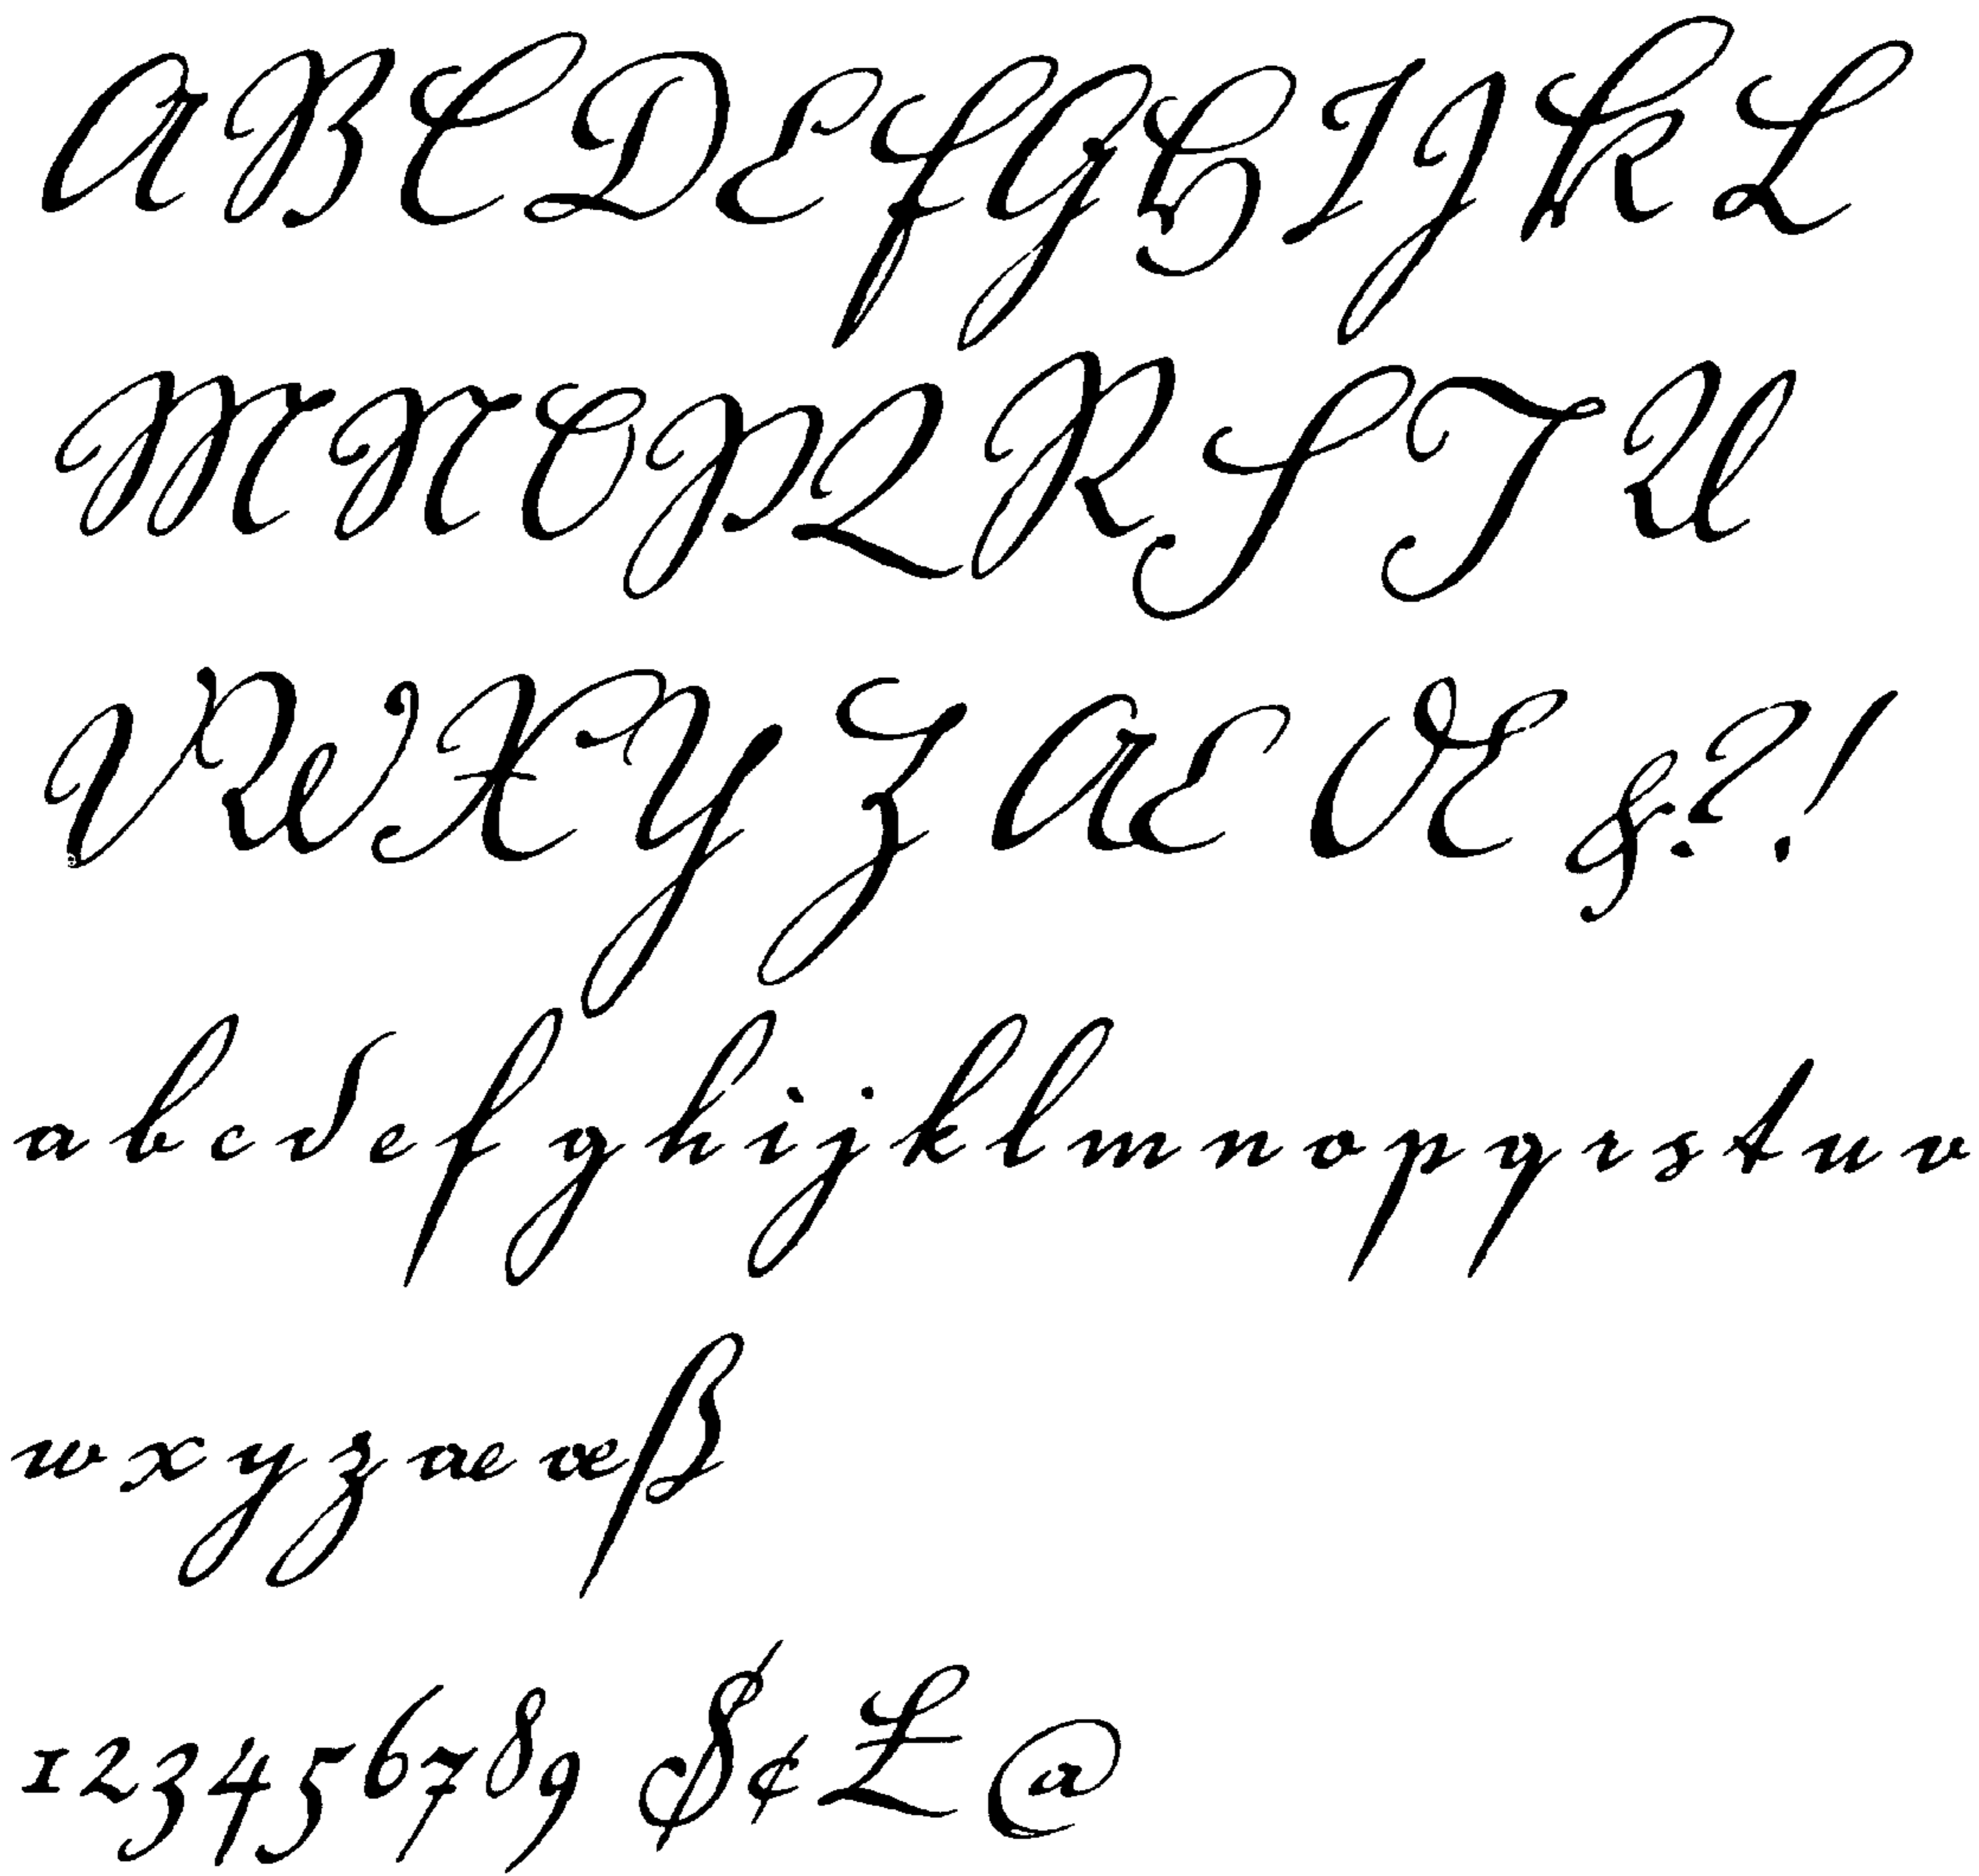 A B C D E F G H I J K L
M N O P Q R S T U
V W X Y Z Æ Œ & ? !
a b c d e f g h i j k l m n o p q r s t u v
w x y z æ œ ß
1 2 3 4 5 6 7 8 9 $ ¢ £ @